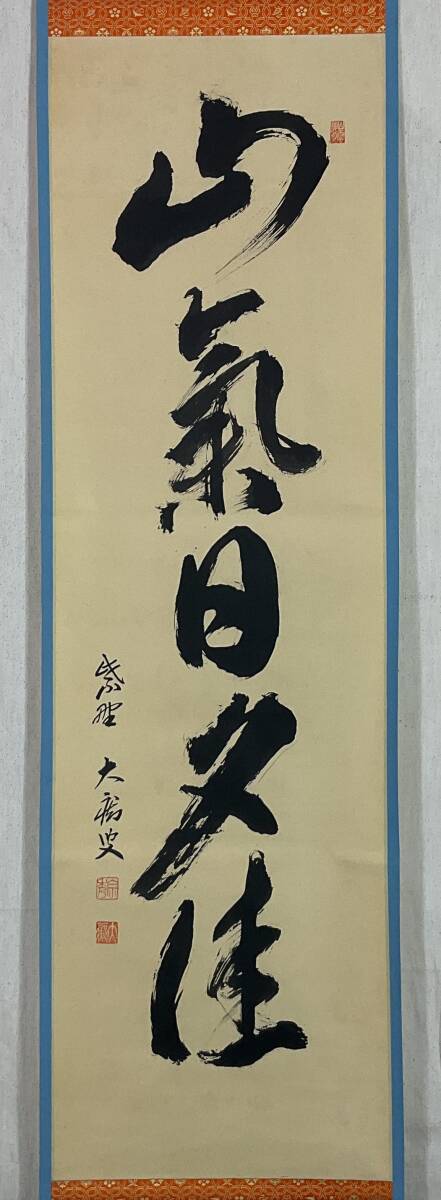 山氣日夕佳
紫野 大